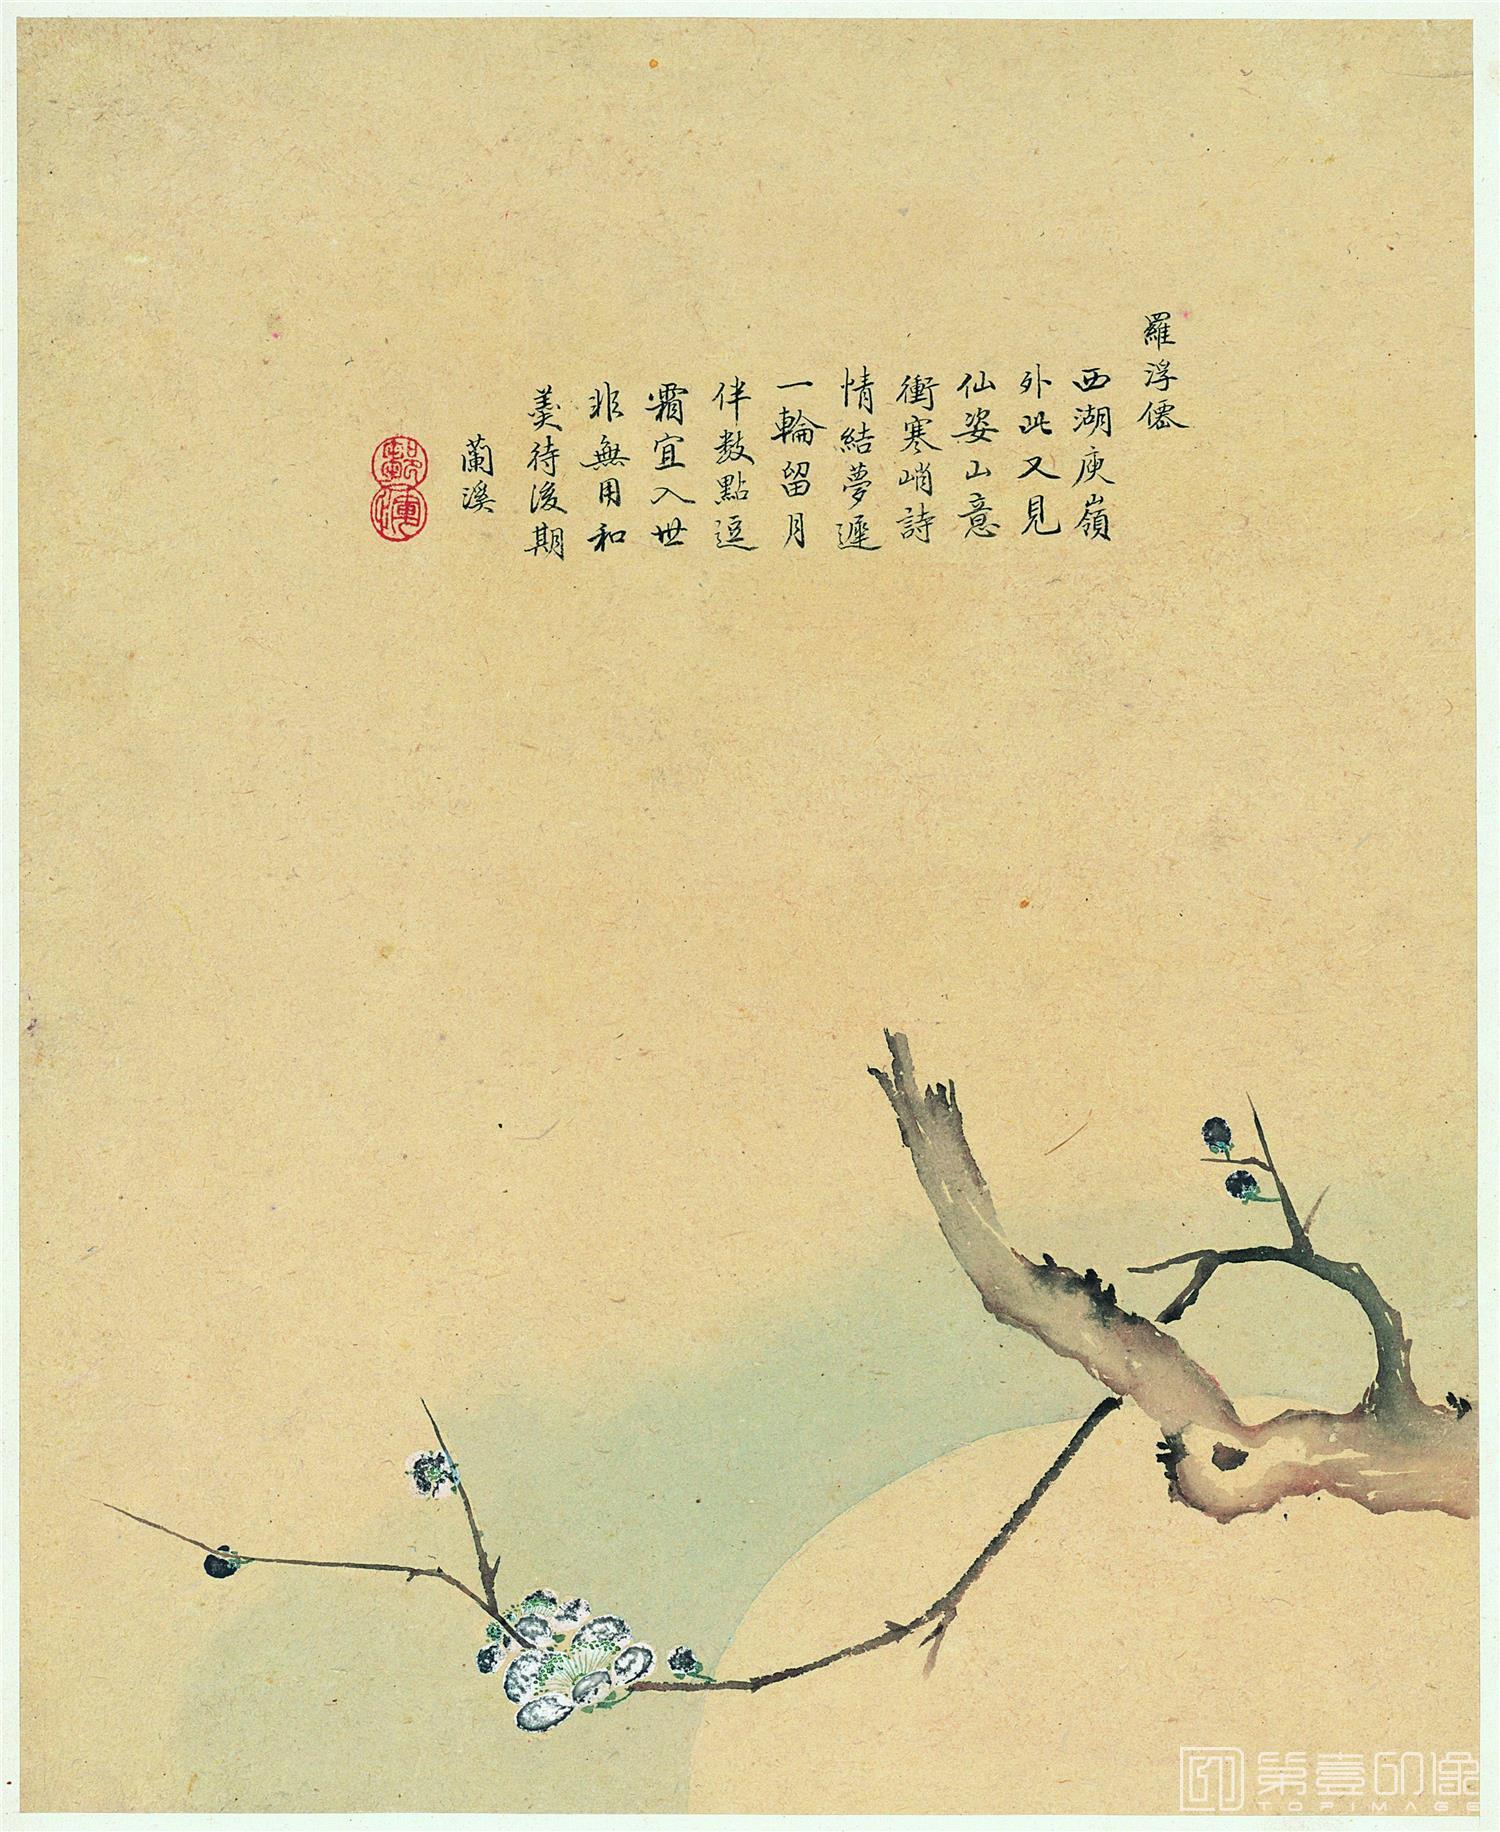 羅浮僊
西湖庾嶺
外此又見
仙姿山意
衝寒峭詩
情結夢遲
一輪留月
伴數點逗
霜宜入世
非無用和
羹待後期
蘭溪
第壹印像
TOPIMAGE